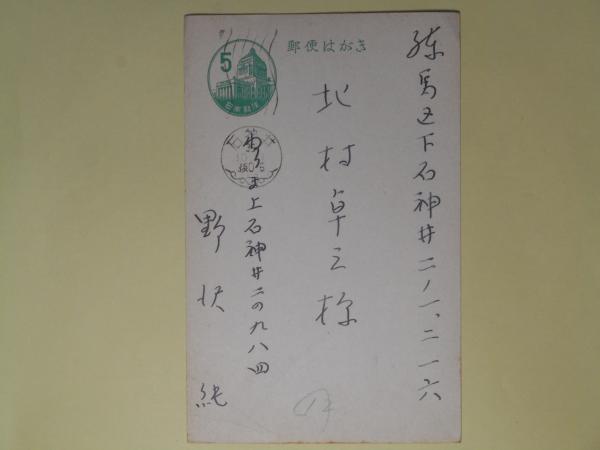 郵便はがき
5
日本郵便
練馬区下石神井二ノ一、二一六
北村卓三様
石神井
ねりま上石神井二の九八四
野沢 純